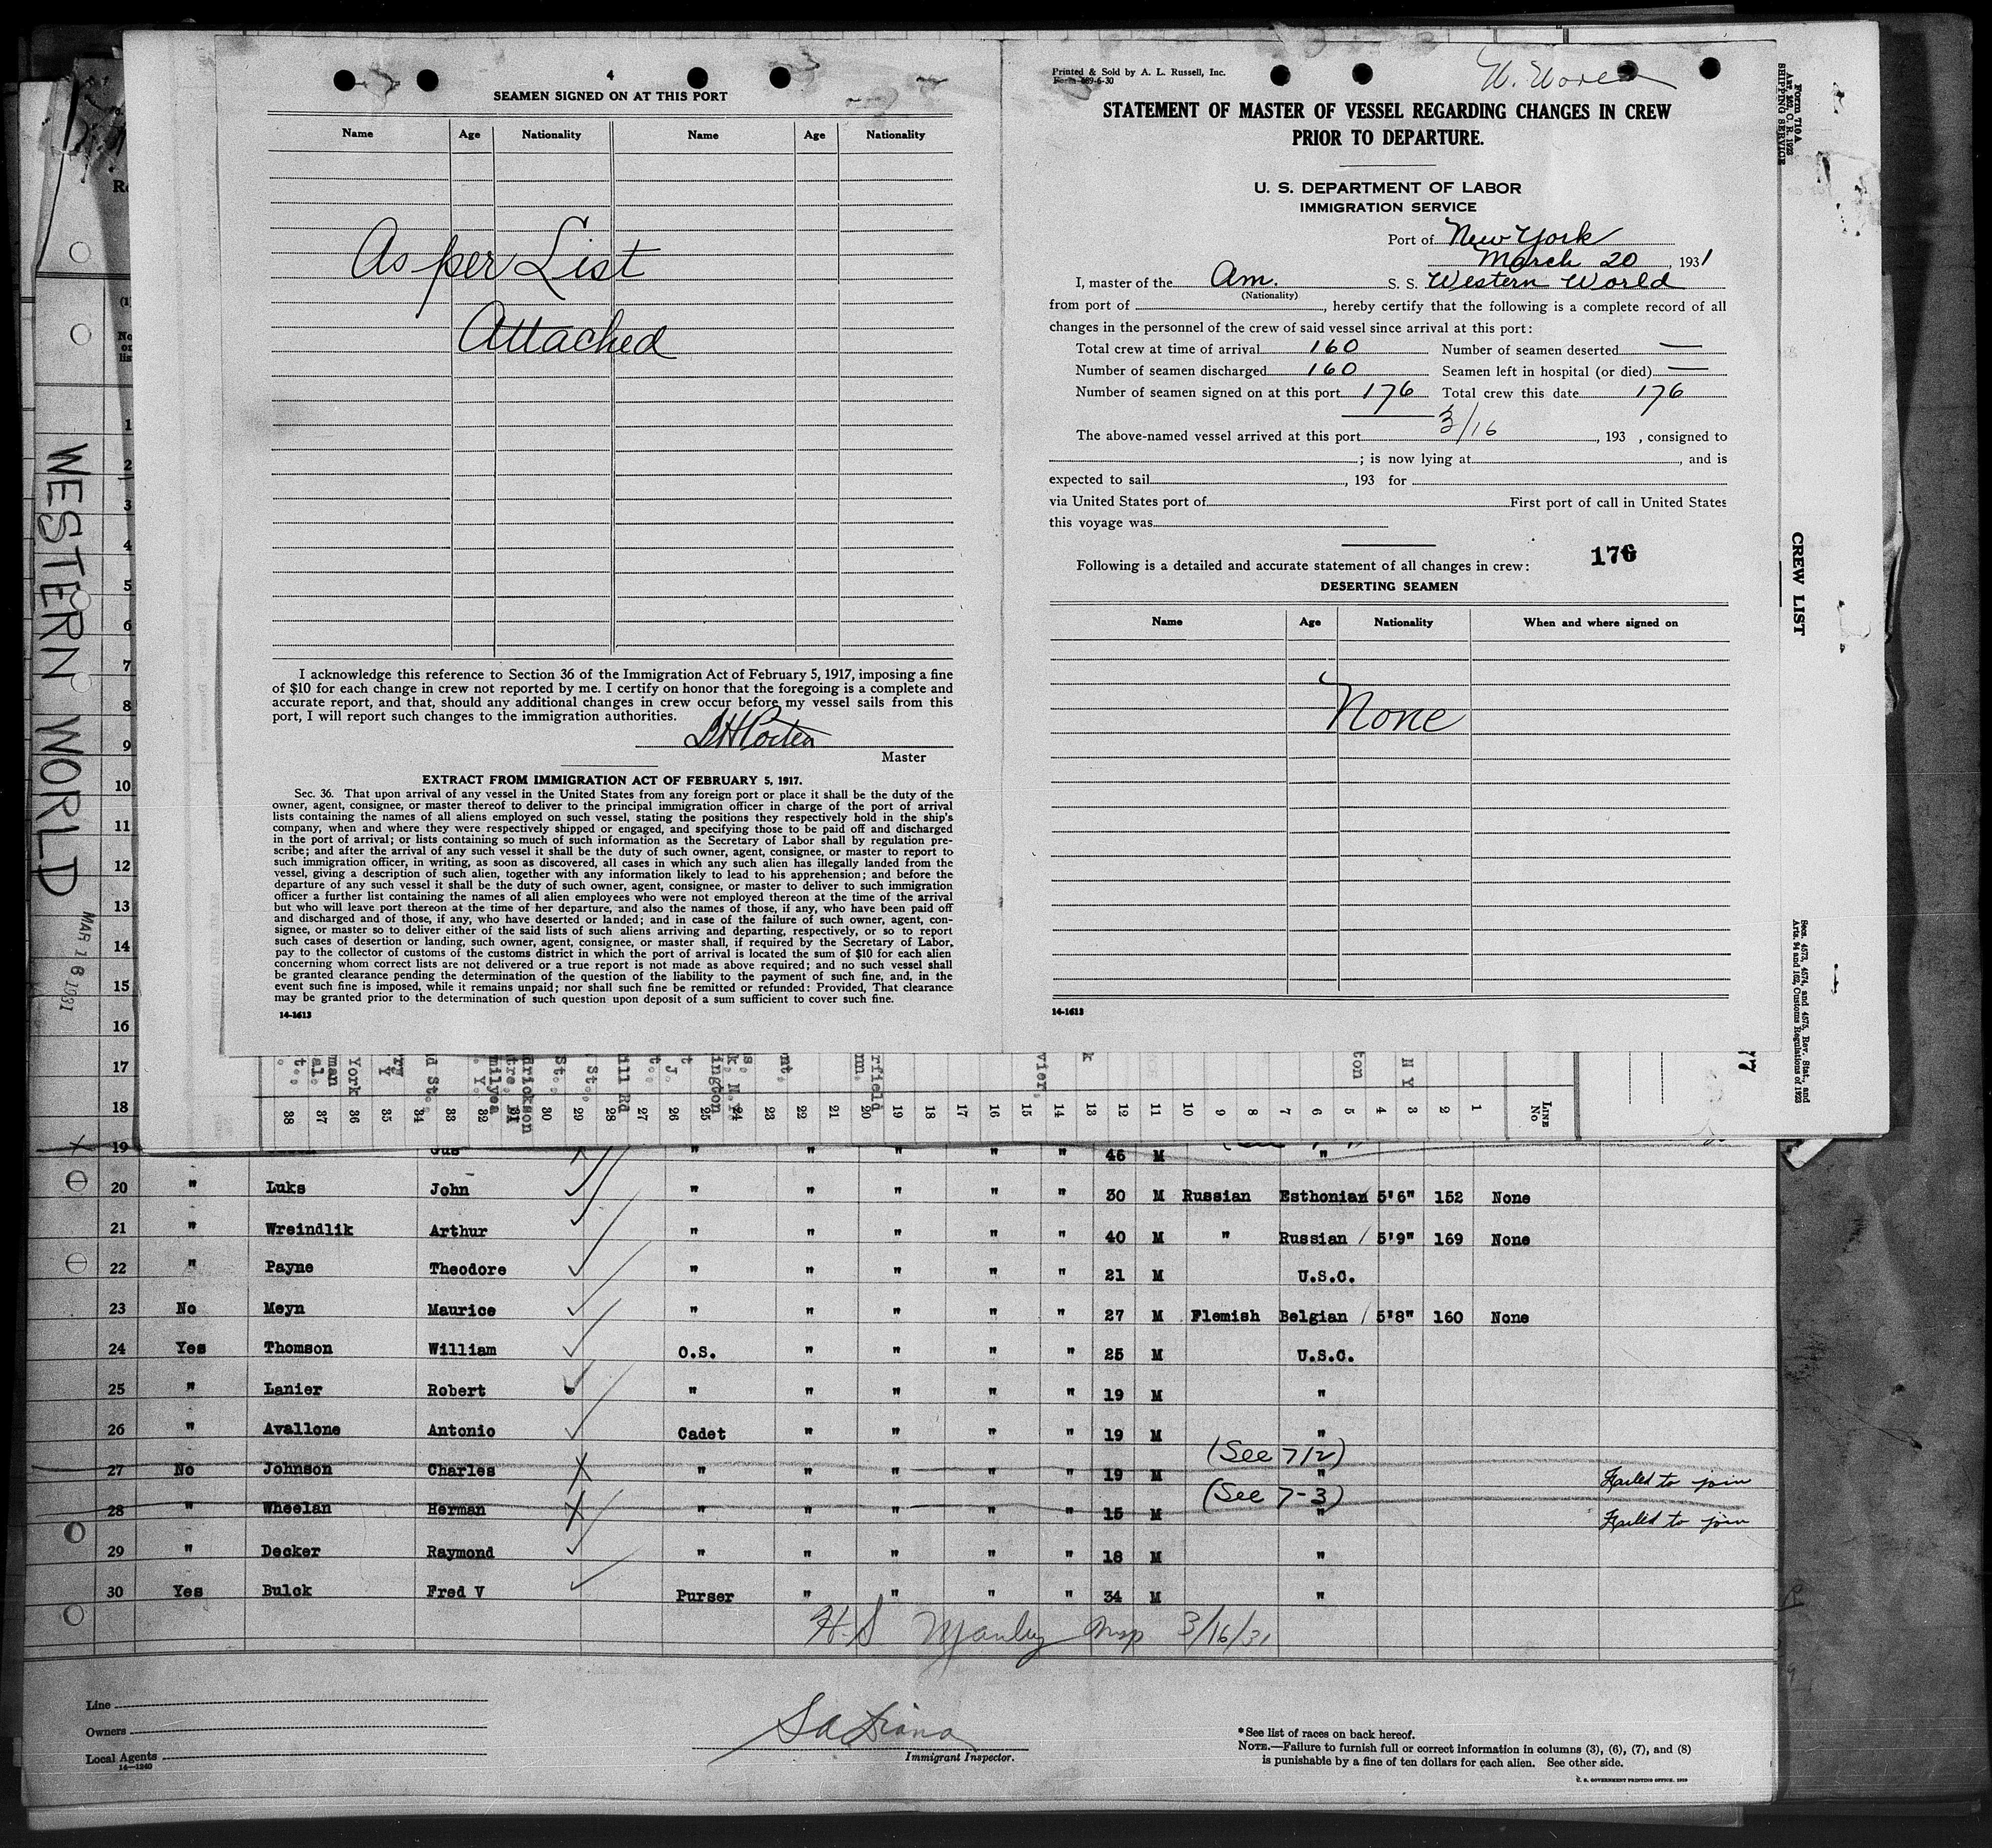 4
SEAMEN SIGNED ON AT THIS PORT
Name Age Nationality Name Age Nationality
As per List
Attached
I acknowledge this reference to Section 36 of the Immigration Act of February 5, 1917, imposing a fine
of $10 for each change in crew not reported by me. I certify on honor that the foregoing is a complete and
accurate report, and that, should any additional changes in crew occur before my vessel sails from this
port, I will report such changes to the immigration authorities.
Master
EXTRACT FROM IMMIGRATION ACT OF FEBRUARY 5, 1917.
Sec. 36. That upon arrival of any vessel in the United States from any foreign port or place it shall be the duty of the
owner, agent, consignee, or master thereof to deliver to the principal immigration officer in charge of the port of arrival
lists containing the names of all aliens employed on such vessel, stating the positions they respectively hold in the ship's
company, when and where they were respectively shipped or engaged, and specifying those to be paid off and discharged
in the port of arrival; or lists containing so much of such information as the Secretary of Labor shall by regulation pre-
scribe; and after the arrival of any such vessel it shall be the duty of such owner, agent, consignee, or master to report to
such immigration officer, in writing, as soon as discovered, all cases in which any such alien has illegally landed from the
vessel, giving a description of such alien, together with any information likely to lead to his apprehension; and before the
departure of any such vessel it shall be the duty of such owner, agent, consignee, or master to deliver to such immigration
officer a further list containing the names of all alien employees who were not employed thereon at the time of the arrival
but who will leave port thereon at the time of her departure, and also the names of those, if any, who have been paid off
and discharged and of those, if any, who have deserted or landed; and in case of the failure of such owner, agent, con-
signee, or master so to deliver either of the said lists of such aliens arriving and departing, respectively, or so to report
such cases of desertion or landing, such owner, agent, consignee, or master shall, if required by the Secretary of Labor,
pay to the collector of customs of the customs district in which the port of arrival is located the sum of $10 for each alien
concerning whom correct lists are not delivered or a true report is not made as above required; and no such vessel shall
be granted clearance pending the determination of the question of the liability to the payment of such fine, and, in the
event such fine is imposed, while it remains unpaid; nor shall such fine be remitted or refunded: Provided, That clearance
may be granted prior to the determination of such question upon deposit of a sum sufficient to cover such fine.
14-1613
Printed & Sold by A. L. Russell, Inc.
Form 689-6-30
STATEMENT OF MASTER OF VESSEL REGARDING CHANGES IN CREW
PRIOR TO DEPARTURE.
U. S. DEPARTMENT OF LABOR
IMMIGRATION SERVICE
Port of New York
March 20, 1931
I, master of the Am. S. S. Western World
(Nationality)
from port of , hereby certify that the following is a complete record of all
changes in the personnel of the crew of said vessel since arrival at this port:
Total crew at time of arrival 160 Number of seamen deserted —
Number of seamen discharged 160 Seamen left in hospital (or died) —
Number of seamen signed on at this port 176 Total crew this date 176
The above-named vessel arrived at this port 3/16, 193 , consigned to
; is now lying at , and is
expected to sail , 193 for
via United States port of First port of call in United States
this voyage was
176
Following is a detailed and accurate statement of all changes in crew:
DESERTING SEAMEN
Name Age Nationality When and where signed on
None
14-1613
Form 710 A
Art. 192, C. R. 1923
SHIPPING SERVICE
CREW LIST
Secs. 4573, 4574, and 4575, Rev. Stat., and
Arts. 94 and 162, Customs Regulations of 1923
WESTERN WORLD
MAR 16 1931
1
2
3
4
5
6
7
8
9
10
11
12
13
14
15
16
17
18
38 37 36 35 34 33 32 31 30 29 28 27 26 25 24 23 22 21 20 19 18 17 16 15 14 13 12 11 10 9 8 7 6 5 4 3 2 1 LINE No
19 Gus " " " " " 46 M "
20 " Luks John " " " " " 30 M Russian Esthonian 5'6" 152 None
21 " Wreindlik Arthur " " " " " 40 M " Russian 5'9" 169 None
22 " Payne Theodore " " " " " 21 M U.S.C.
23 No Meyn Maurice " " " " " 27 M Flemish Belgian 5'8" 160 None
24 Yes Thomson William O.S. " " " " 25 M U.S.C.
25 " Lanier Robert " " " " " 19 M "
26 " Avallone Antonio Cadet " " " " 19 M "
(See 7/2)
27 No Johnson Charles " " " " " 19 M " Failed to join
(See 7-3)
28 " Wheelan Herman " " " " " 15 M " Failed to join
29 " Decker Raymond " " " " " 18 M "
30 Yes Bulck Fred V Purser " " " " 34 M "
H.S Manley Insp 3/16/31
Line
Owners
Local Agents
14—1240
Immigrant Inspector.
*See list of races on back hereof.
NOTE.—Failure to furnish full or correct information in columns (3), (6), (7), and (8)
is punishable by a fine of ten dollars for each alien. See other side.
U. S. GOVERNMENT PRINTING OFFICE, 1929